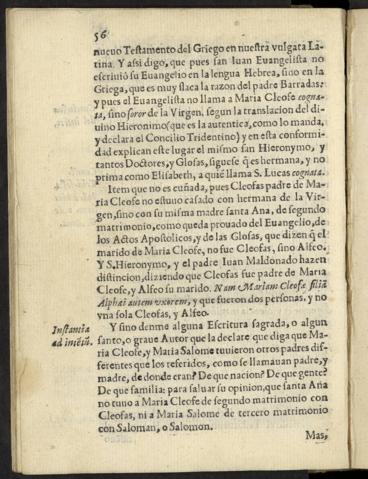 56
nueuo Testamento del Griego en nuestra vulgata La-
tina. Y assi digo, que pues san Iuan Euangelista no
escriuiò su Euangelio en la lengua Hebrea, sino en la
Griega, que es muy flaca la razon del padre Barradas:
y pues el Euangelista no llama a Maria Cleofe cogna-
ta, sino soror de la Virgen, segun la translacion del di-
uino Hieronimo (que es la autentica, como lo manda,
y declara el Concilio Tridentino) y en esta conformi-
dad explican este lugar el mismo san Hieronymo, y
tantos Doctores, y Glosas, siguese q̃ es hermana, y no
prima como Elisabeth, a quiẽ llama S. Lucas cognata.
Item que no es cuñada, pues Cleofas padre de Ma-
ria Cleofe no estuuo casado con hermana de la Vir-
gen, sino con su misma madre santa Ana, de segundo
matrimonio, como queda prouado del Euangelio, de
los Actos Apostolicos, y de las Glosas, que dizen q̃ el
marido de Maria Cleofe, no fue Cleofas, sino Alfeo.
Y S. Hieronymo, y el padre Iuan Maldonado hazen
distincion, diziendo que Cleofas fue padre de Maria
Cleofe, y Alfeo su marido. Nam Mariam Cleofæ filiã
Alphæi autem vxorem, y que fueron dos personas, y no
vna sola Cleofas, y Alfeo.
Instantia
ad intẽtũ.
Y sino denme alguna Escritura sagrada, o algun
santo, o graue Autor que la declare que diga que Ma-
ria Cleofe, y Maria Salome tuuieron otros padres dif-
ferentes que los referidos, como se llamauan padre, y
madre, de donde eran? De que nacion? De que gente?
De que familia: para saluar su opinion, que santa Aña
no tuuo a Maria Cleofe de segundo matrimonio con
Cleofas, ni a Maria Salome de tercero matrimonio
con Saloman, o Salomon.
Mas,